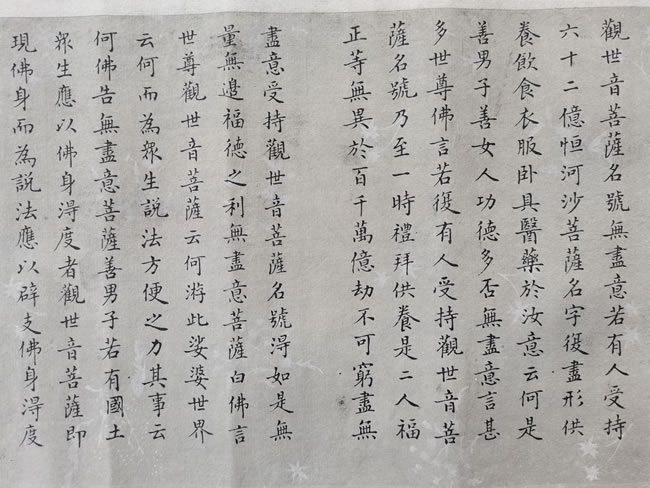 觀世音菩薩名號無盡意若有人受持
六十二億恒河沙菩薩名字復盡形供
養飲食衣服卧具醫藥於汝意云何是
善男子善女人功德多否無盡意言甚
多世尊佛言若復有人受持觀世音菩
薩名號乃至一時禮拜供養是二人福
正等無異於百千萬億劫不可窮盡無
盡意受持觀世音菩薩名號淂如是無
量無邊福德之利無盡意菩薩白佛言
世尊觀世音菩薩云何游此娑婆世界
云何而為衆生説法方便之力其事云
何佛告無盡意菩薩善男子若有國土
衆生應以佛身淂度者觀世音菩薩即
現佛身而為説法應以辟支佛身淂度